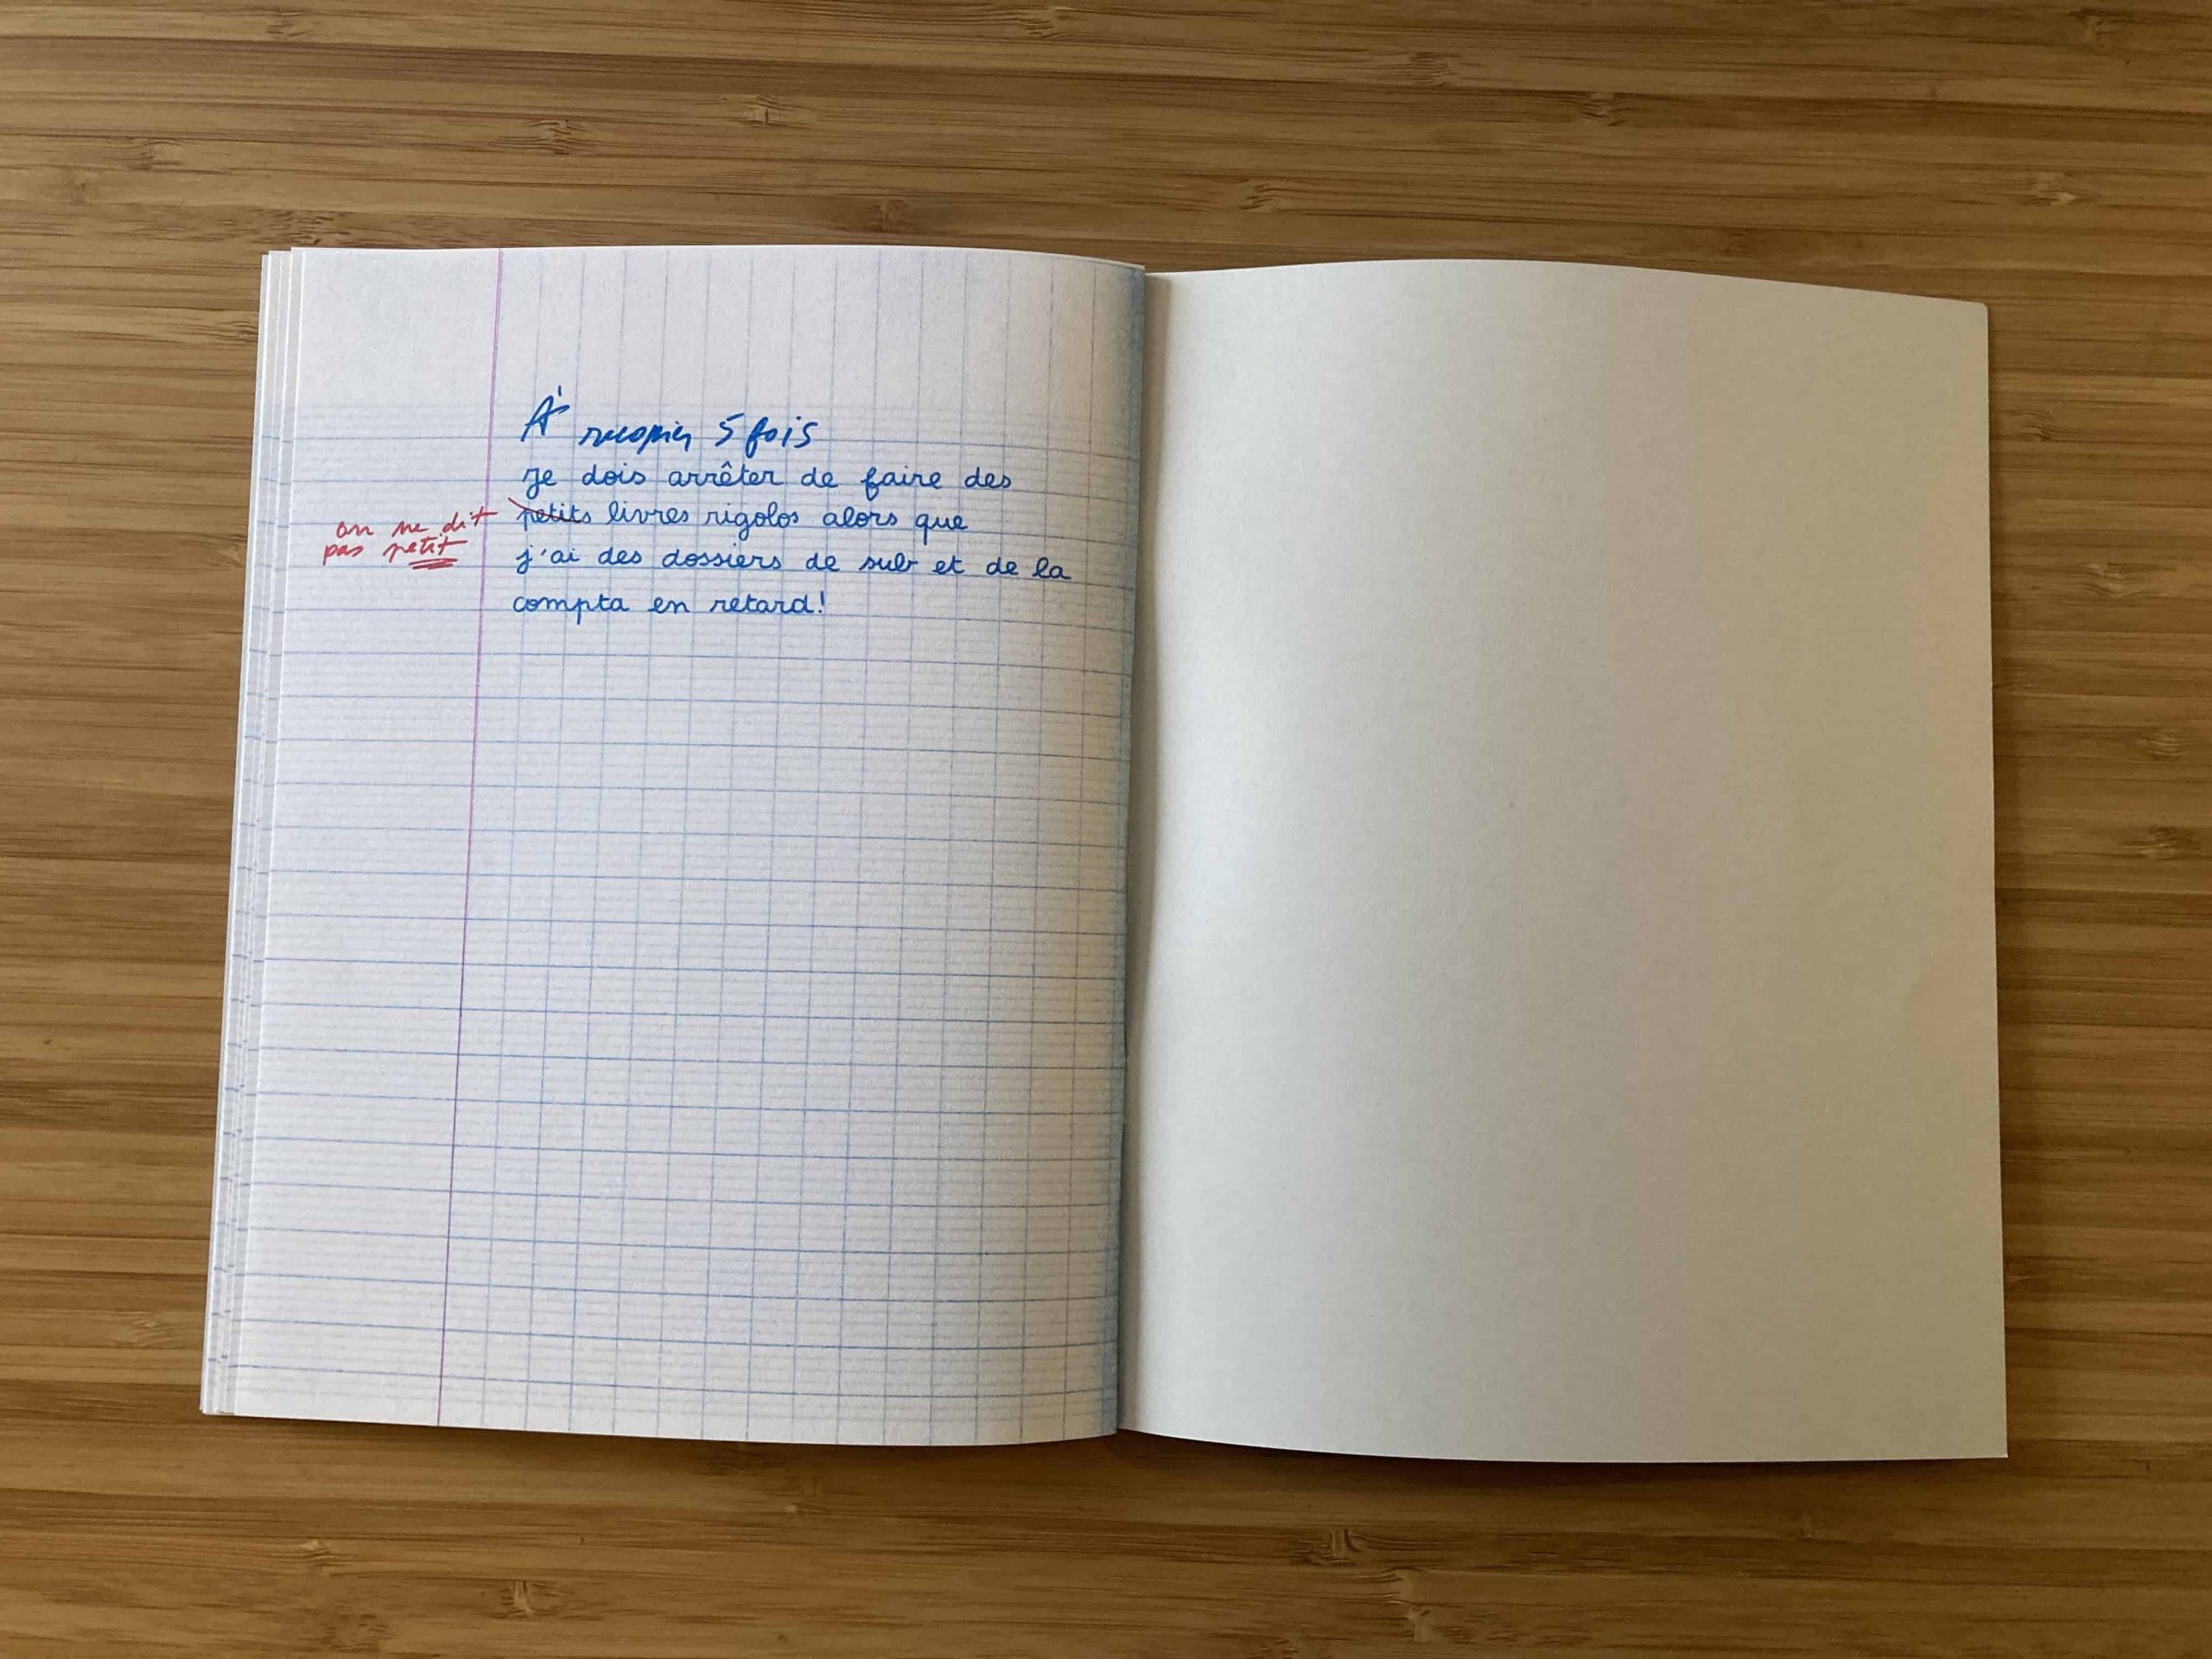 À recopier 5 fois
Je dois arrêter de faire des
petits livres rigolos alors que
j'ai des dossiers de sub et de la
compta en retard!
on ne dit
pas petit